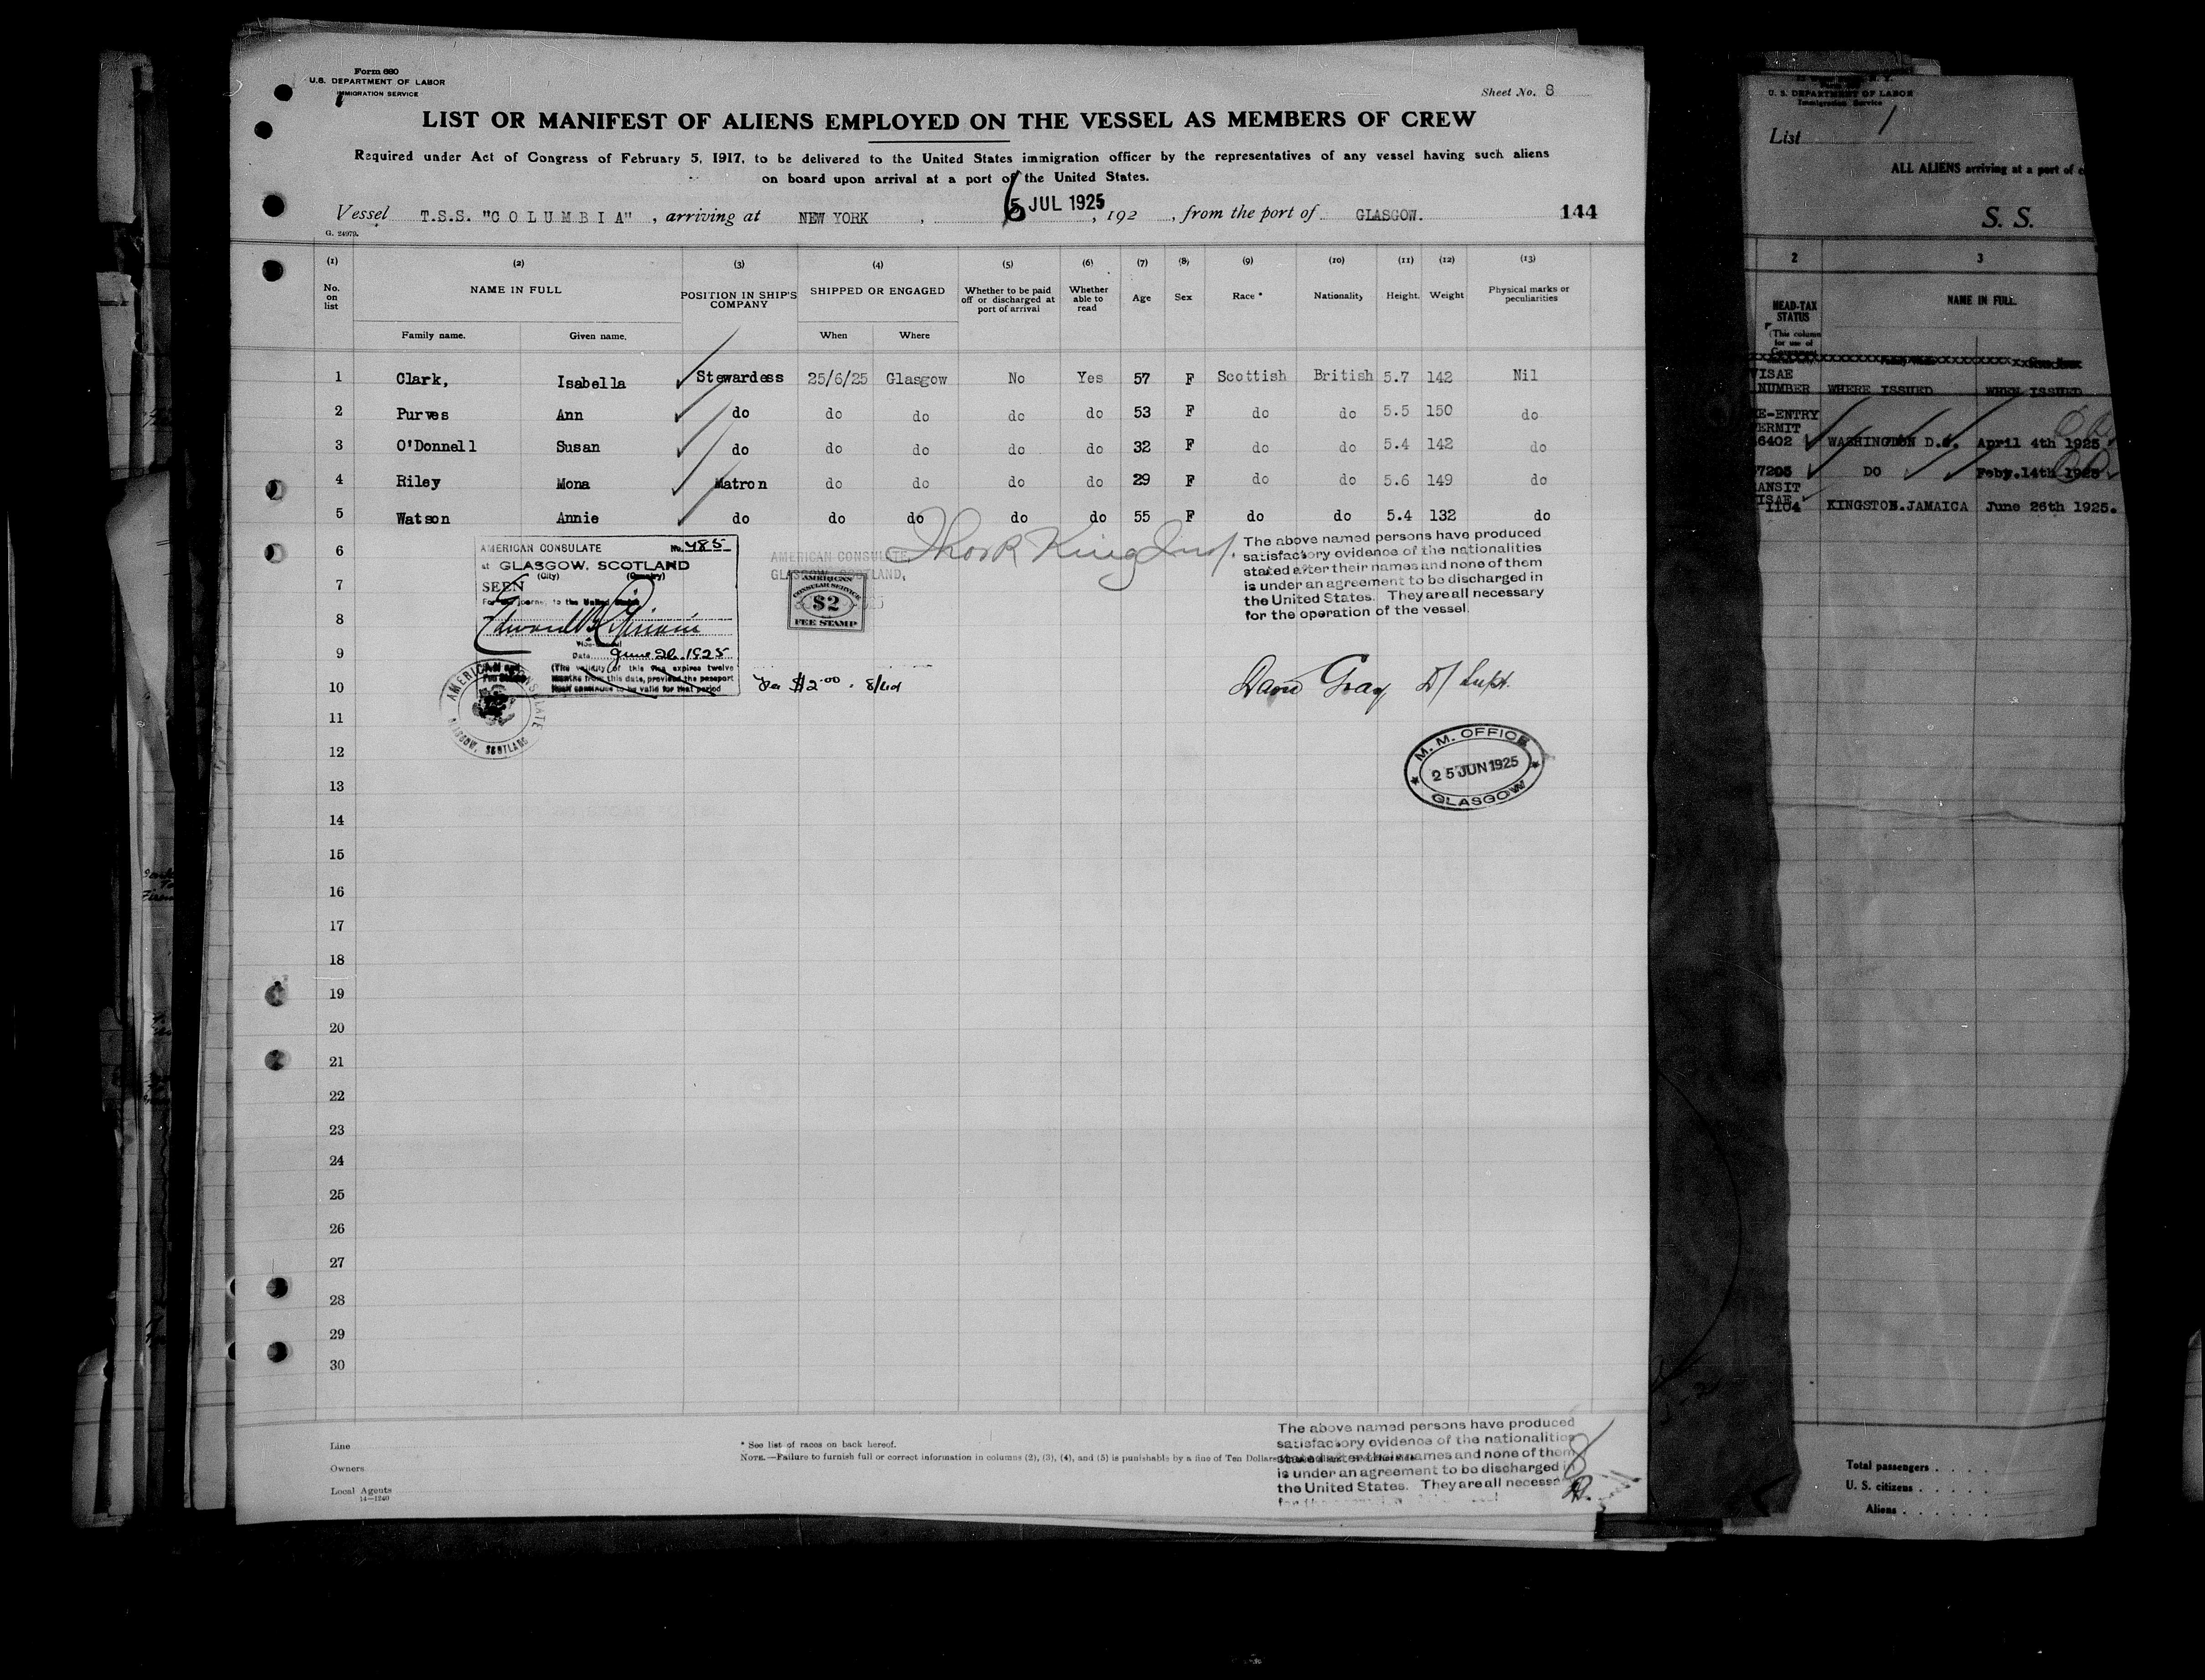 Form 680
U.S. DEPARTMENT OF LABOR
IMMIGRATION SERVICE
Sheet No. 8
LIST OR MANIFEST OF ALIENS EMPLOYED ON THE VESSEL AS MEMBERS OF CREW
Required under Act of Congress of February 5, 1917, to be delivered to the United States immigration officer by the representatives of any vessel having such aliens
on board upon arrival at a port of the United States.
Vessel T.S.S. "COLUMBIA", arriving at NEW YORK, 6 JUL 1925, 192, from the port of GLASGOW. 144
G. 24979.
(1) (2) (3) (4) (5) (6) (7) (8) (9) (10) (11) (12) (13)
No. on list NAME IN FULL POSITION IN SHIP'S COMPANY SHIPPED OR ENGAGED Whether to be paid off or discharged at port of arrival Whether able to read Age Sex Race * Nationality Height. Weight Physical marks or peculiarities
Family name. Given name. When Where
1 Clark, Isabella Stewardess 25/6/25 Glasgow No Yes 57 F Scottish British 5.7 142 Nil
2 Purves Ann do do do do do 53 F do do 5.5 150 do
3 O'Donnell Susan do do do do do 32 F do do 5.4 142 do
4 Riley Mona Matron do do do do 29 F do do 5.6 149 do
5 Watson Annie do do do do do 55 F do do 5.4 132 do
6
7
8
9
10
11
12
13
14
15
16
17
18
19
20
21
22
23
24
25
26
27
28
29
30
AMERICAN CONSULATE No. 485
at GLASGOW, SCOTLAND
(City) (Country)
SEEN
For the journey to the United States
Date June 26, 1925
(The validity of this visa expires twelve
months from this date, provided the passport
itself continues to be valid for that period
AMERICAN CONSULATE
GLASGOW, SCOTLAND
AMERICAN CONSULATE
GLASGOW, SCOTLAND,
AMERICAN
CONSULAR SERVICE
$2
FEE STAMP
Fee $2.00
The above named persons have produced
satisfactory evidence of the nationalities
stated after their names and none of them
is under an agreement to be discharged in
the United States. They are all necessary
for the operation of the vessel.
M. M. OFFICE
25 JUN 1925
GLASGOW
Line
Owners
Local Agents
14—1240
* See list of races on back hereof.
NOTE.—Failure to furnish full or correct information in columns (2), (3), (4), and (5) is punishable by a fine of Ten Dollars
The above named persons have produced
satisfactory evidence of the nationalities
stated after their names and none of them
is under an agreement to be discharged in
the United States. They are all necess
U. S. DEPARTMENT OF LABOR
Immigration Service
List 1
ALL ALIENS arriving at a port of
S. S.
2 3
HEAD-TAX STATUS NAME IN FULL
(This column
for use of
VISAE
NUMBER WHERE ISSUED WHEN ISSUED
E-ENTRY
ERMIT
6402 WASHINGTON D.C. April 4th 1925
7205 DO Feby.14th 1925
ANSIT
ISAE
1104 KINGSTON.JAMAICA June 26th 1925.
Total passengers
U. S. citizens
Aliens